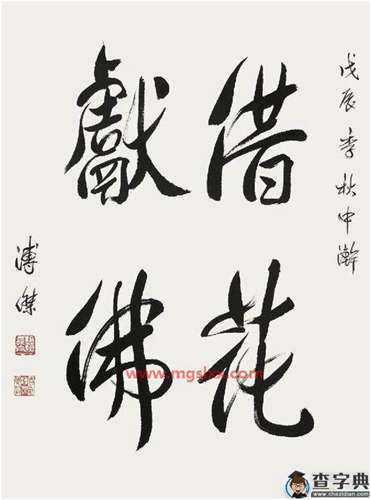 戊辰季秋中澣
借花
獻佛
溥傑
www.mgslxx.com
查字典
www.chazidian.com